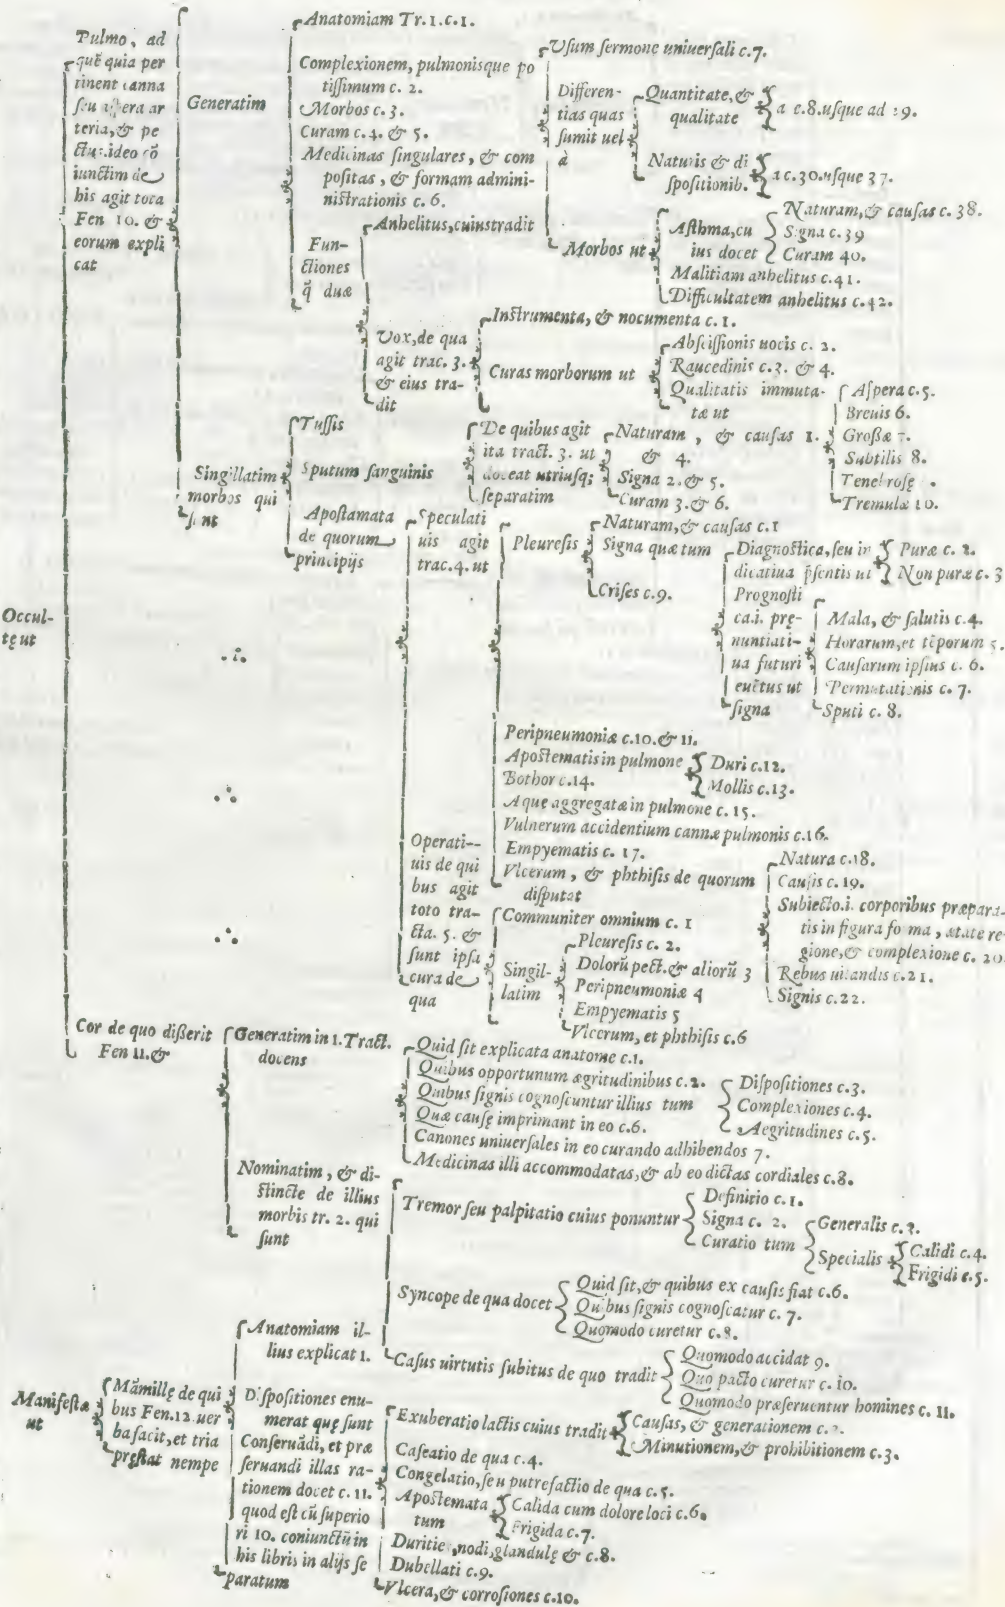 Pulmo, ad
quẽ quia per
tinent canna
seu aspera ar
teria, & pe
ctus: ideo cõ
iunctim de
his agit tota
Fen 10. &
eorum expli
cat
Generatim
Anatomiam Tr. 1. c. 1.
Complexionem, pulmonisque po
tissimum c. 2.
Morbos c. 3.
Curam c. 4. & 5.
Medicinas singulares, & com
positas, & formam admini-
nistrationis c. 6.
Fun-
ctiones
q̃ duæ
Anhelitus, cuius tradit
Usum sermone uniuersali c. 7.
Differen-
tias quas
sumit uel
à
Quantitate, &
qualitate
a c. 8. usque ad 29.
Naturis & di
spositionib.
a c. 30. usque 37.
Morbos ut
Asthma, cu
ius docet
Naturam, & causas c. 38.
Signa c. 39
Curam 40.
Malitiam anhelitus c. 41.
Difficultatem anhelitus c. 42.
Vox, de qua
agit trac. 3.
& eius tra-
dit
Instrumenta, & nocumenta c. 1.
Curas morborum ut
Abscissionis uocis c. 2.
Raucedinis c. 3. & 4.
Qualitatis immuta-
tæ ut
Aspera c. 5.
Breuis 6.
Großæ 7.
Subtilis 8.
Tenebrosę
Tremulæ 10.
Singillatim
morbos qui
sunt
Tussis
Sputum sanguinis
De quibus agit
ita tract. 3. ut
doceat utriusq;
separatim
Naturam, & causas 1.
& 4.
Signa 2. & 5.
Curam 3. & 6.
Apostamata
de quorum
principijs
Speculati
uis agit
trac. 4. ut
Pleuresis
Naturam, & causas c. 1
Signa quæ tum
Crises c. 9.
Diagnostica, seu in
dicatiua p̃sentis ut
Puræ c. 2.
Non puræ c. 3
Prognosti
ca .i. prę-
nuntiati-
ua futuri
euẽtus ut
signa
Mala, & salutis c. 4.
Horarum, et tẽporum 5.
Causarum ipsius c. 6.
Permutationis c. 7.
Sputi c. 8.
Occul-
tę ut
Peripneumoniæ c. 10. & 11.
Apostematis in pulmone
Duri c. 12.
Mollis c. 13.
Bothor c. 14.
Aque aggregatæ in pulmone c. 15.
Vulnerum accidentium cannæ pulmonis c. 16.
Empyematis c. 17.
Vlcerum, & phthisis de quorum
disputat
Natura c. 18.
Causis c. 19.
Subiecto .i. corporibus præpara-
tis in figura forma, ætate re-
gione, & complexione c. 20.
Rebus uitandis c. 21.
Signis c. 22.
Operati--
uis de qui
bus agit
toto tra-
cta. 5. &
sunt ipsa
cura de
qua
Communiter omnium c. 1
Singil-
latim
Pleuresis c. 2.
Dolorũ pect. & aliorũ 3
Peripneumoniæ 4
Empyematis 5
Vlcerum, et phthisis c. 6
Cor de quo dißerit
Fen 11. &
Generatim in 1. Tract.
docens
Quid sit explicata anatome c. 1.
Quibus opportunum ægritudinibus c. 2.
Quibus signis cognoscuntur illius tum
Dispositiones c. 3.
Complexiones c. 4.
Aegritudines c. 5.
Quæ causę imprimant in eo c. 6.
Canones uniuersales in eo curando adhibendos 7.
Medicinas illi accommodatas, & ab eo dictas cordiales c. 8.
Nominatim, & di-
stincte de illius
morbis tr. 2. qui
sunt
Tremor seu palpitatio cuius ponuntur
Definitio c. 1.
Signa c. 2.
Curatio tum
Generalis c. 3.
Specialis
Calidi c. 4.
Frigidi c. 5.
Syncope de qua docet
Quid sit, & quibus ex causis fiat c. 6.
Quibus signis cognoscatur c. 7.
Quomodo curetur c. 8.
Casus uirtutis subitus de quo tradit
Quomodo accidat 9.
Quo pacto curetur c. 10.
Quomodo præseruentur homines c. 11.
Manifestæ
ut
Mãmillę de qui
bus Fen. 12. uer
ba facit, et tria
prestat nempe
Anatomiam il-
lius explicat 1.
Dispositiones enu-
merat quę sunt
Conseruãdi, et præ
seruandi illas ra-
tionem docet c. 11.
quod est cũ superio
ri 10. coniunctũ in
his libris in alijs se
paratum
Exuberatio lactis cuius tradit
Causas, & generationem c. 2.
Minutionem, & prohibitionem c. 3.
Caseatio de qua c. 4.
Congelatio, seu putrefactio de qua c. 5.
Apostemata
tum
Calida cum dolore loci c. 6.
Frigida c. 7.
Duritie, nodi, glandulę & c. 8.
Dubellati c. 9.
Vlcera, & corrosiones c. 10.